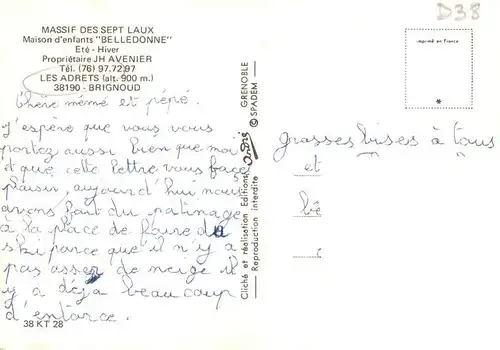 MASSIF DES SEPT LAUX
Maison d'enfants "BELLEDONNE"
Eté - Hiver
Propriétaire JH AVENIER
Tél. (76) 97.72.97
LES ADRETS (alt. 900 m.)
38190 - BRIGNOUD
Chère mémé et pépé.
J'espère que vous vous
portez aussi bien que moi
et que cette lettre vous face
plaisir, aujourd'hui nous
avons fait du patinage
à la place de faire du
ski parce que il n'y a
pas asser de neige il
y a déja beaucoup
d'entarce.
38 KT 28
Cliché et réalisation Editions André GRENOBLE
Reproduction interdite © SPADEM
D38
Imprimé en France
*
grasses bises à tous
et
bê